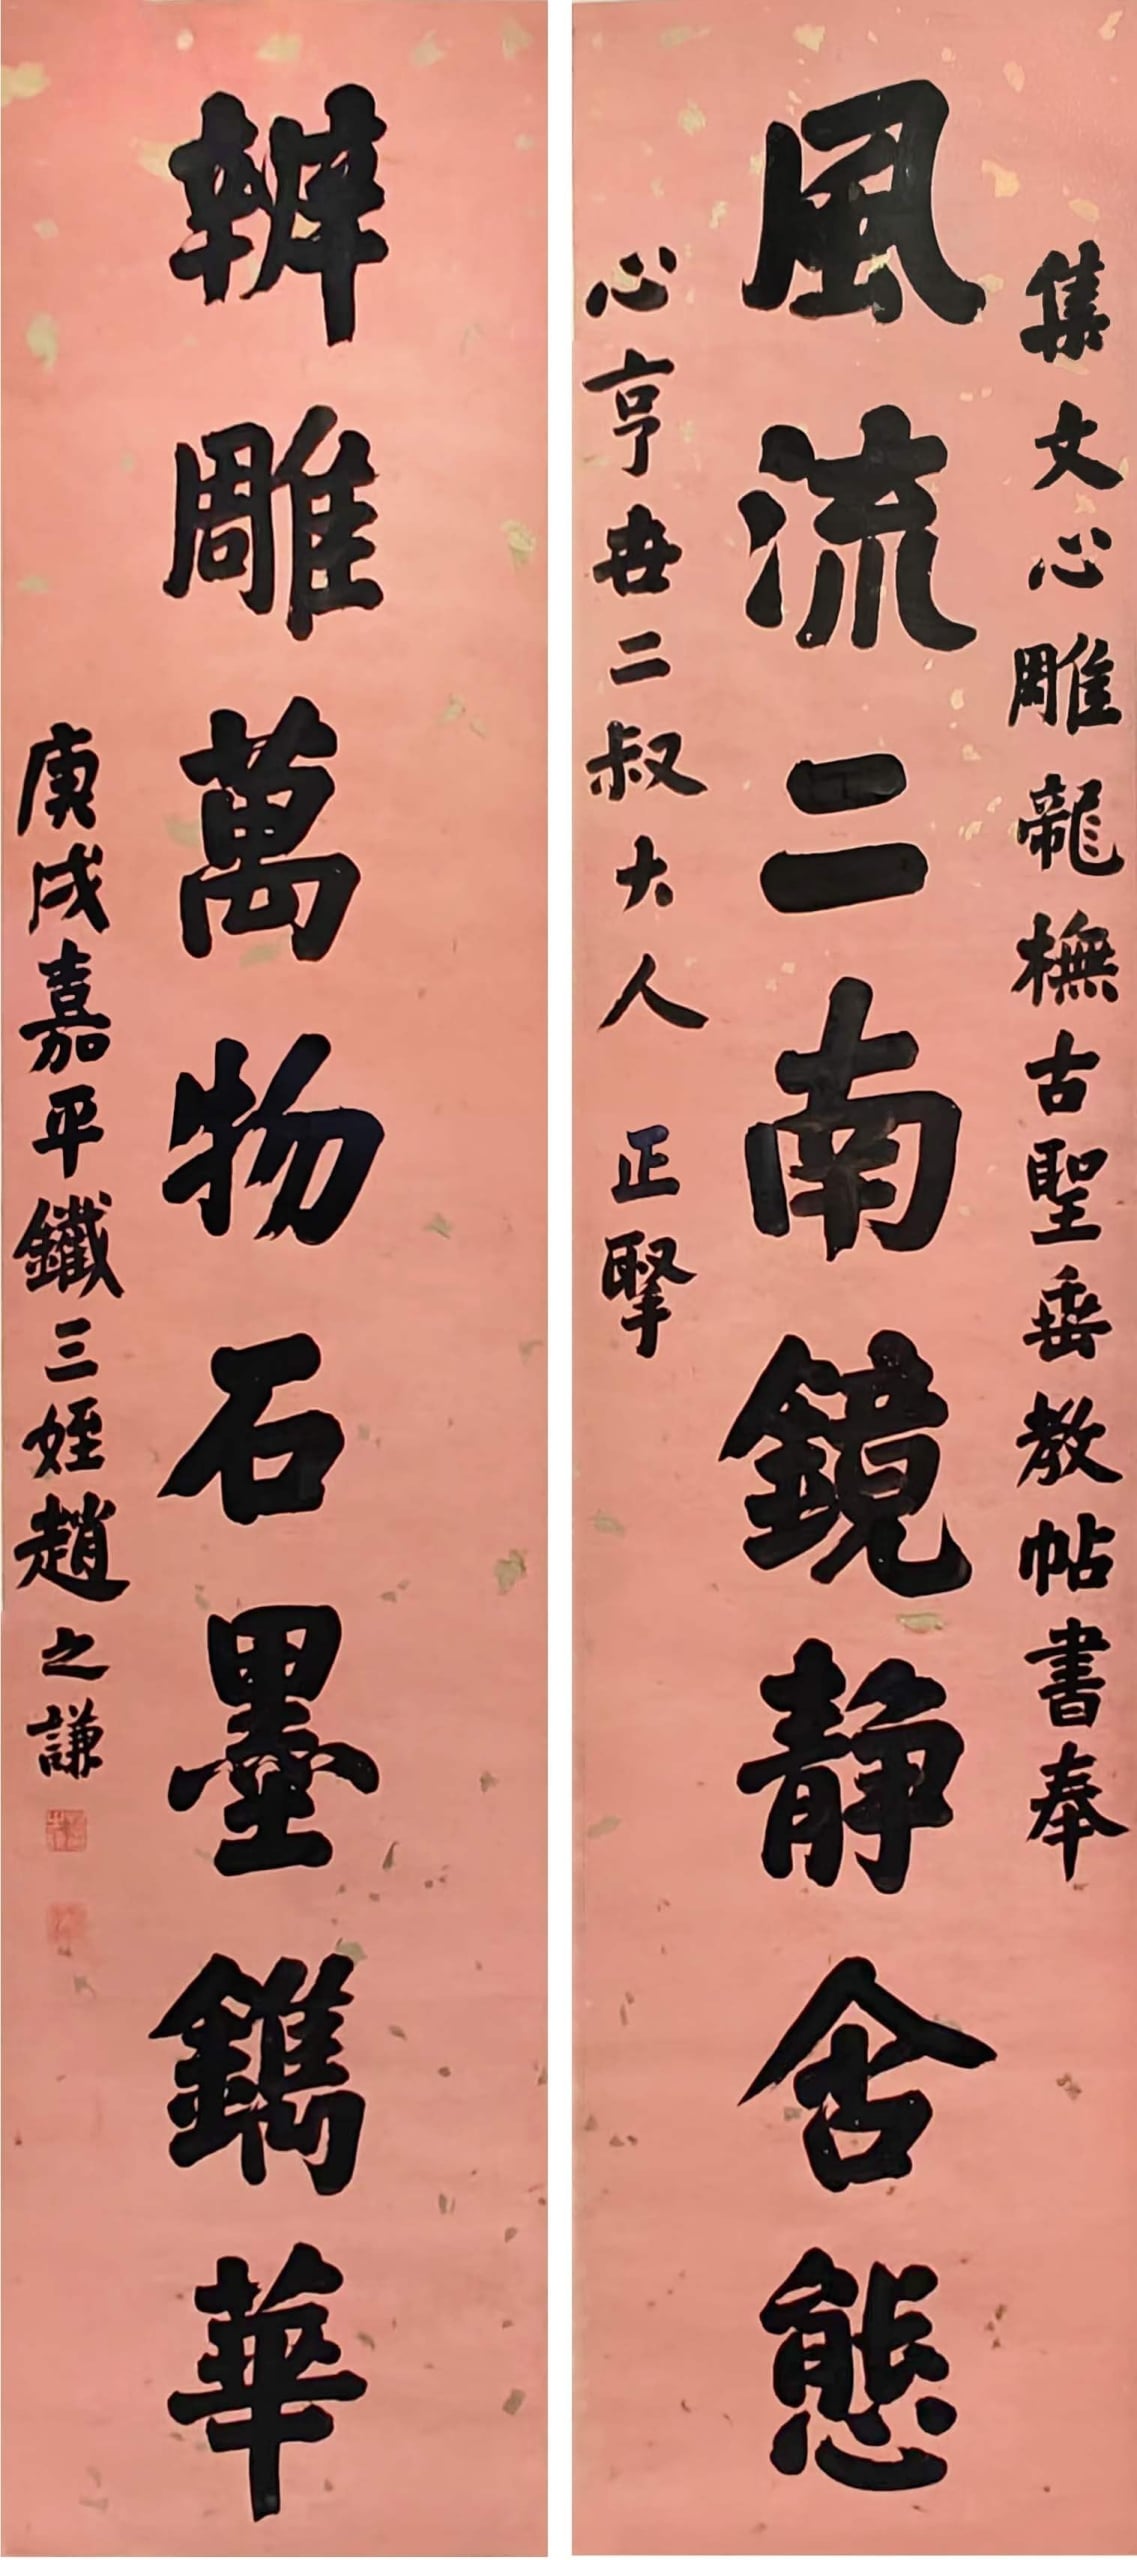 集文心雕龍橅古聖垂教帖書奉
風流二南鏡靜含態
心亨世二叔大人 正掔
辨雕萬物石墨鐫華
庚戌嘉平鐵三姪趙之謙